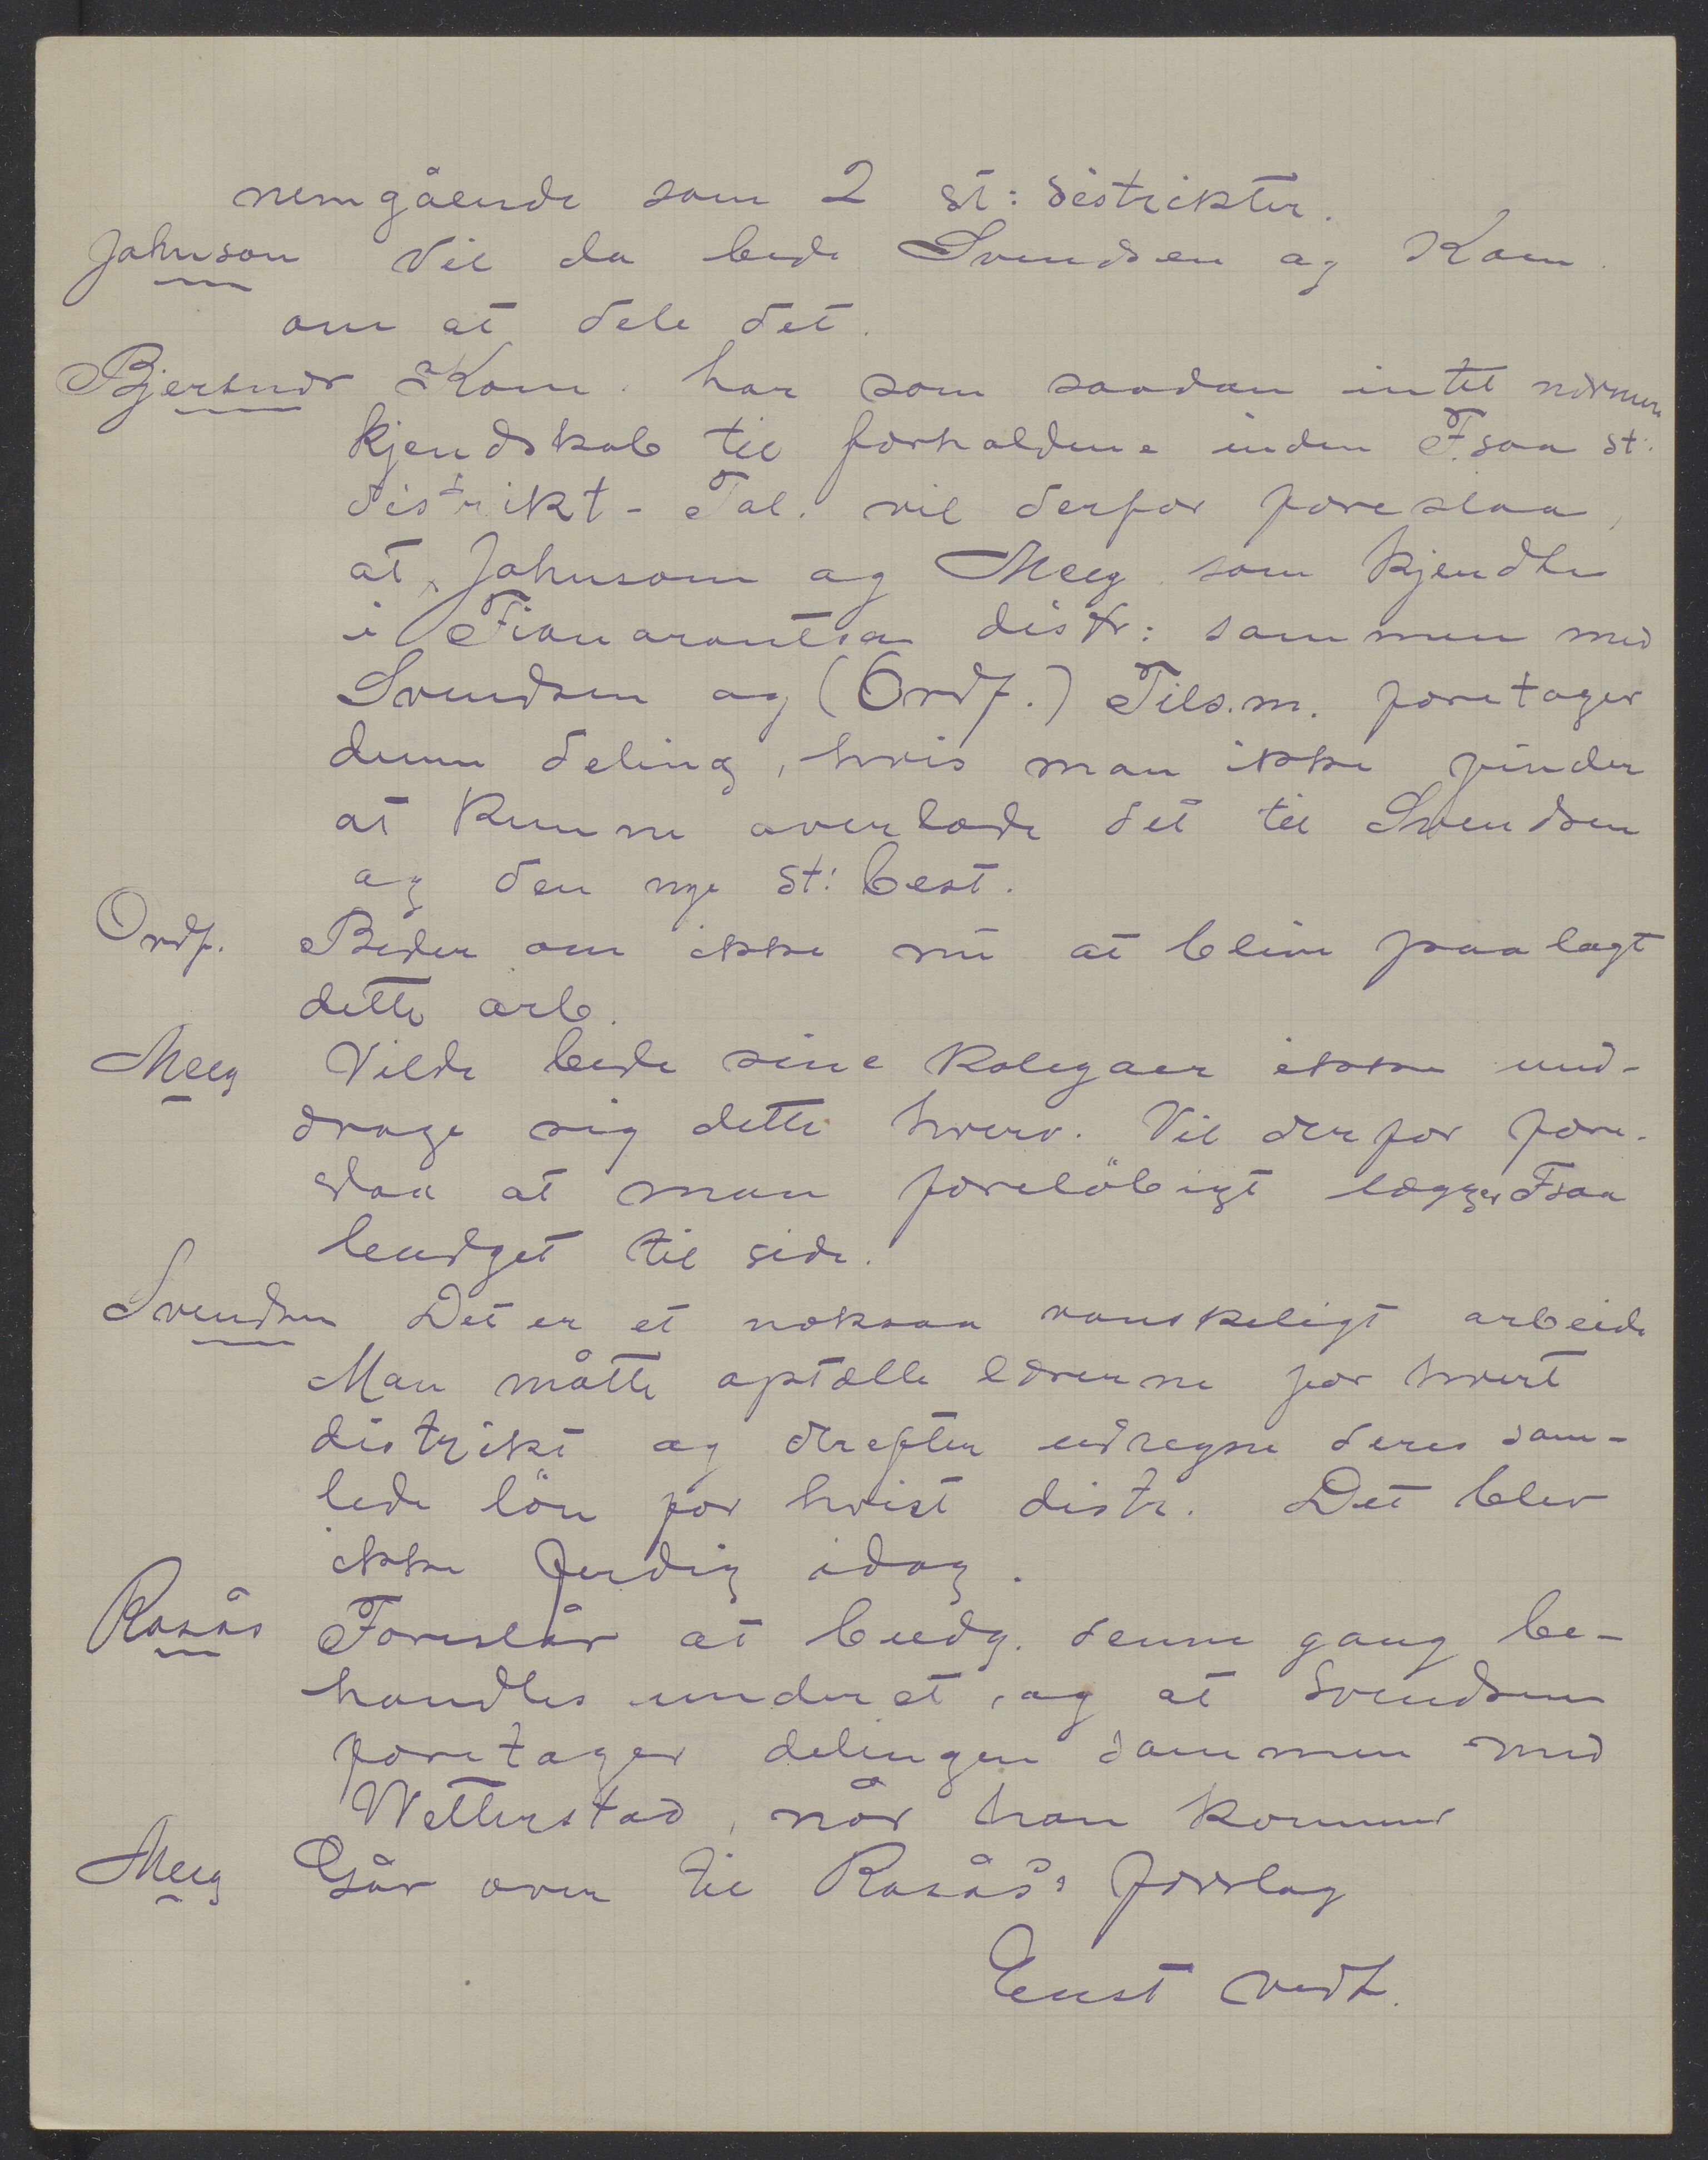 nemgående som 2 st: distrikter.
Johnson Vil da bede Svendsen og Kom.
om at dele det.
Bjertnæs Kom. har som saadan intet nærmere
kjendskab til forholdene inden F.soa st:
distrikt - Tal. vil derfor foreslaa,
at Johnson og Meeg som kjendte
i Fianarantsoa distr: sammen med
Svendsen og (Ordf.) Tils.m. foretager
denne deling, hvis man ikke finder
at kunne overlade det til Svendsen
og den nye st: best.
Ordf. Beder om ikke nu at blive paalagt
dette arb.
Meeg Vilde bede sine kolegaer ikke und-
drage sig dette hverv. Vil derfor fore-
slaa at man foreløbigt lægger Fsoa
budget til side.
Svendsen Det er et noksaa vanskeligt arbeide
Man måtte optælle lærerne for hvert
distrikt og derefter udregne deres sam-
lede lön for hvert distr. Det blev
ikke færdig idag.
Rosås Foreslår at budg. denne gang be-
handles under et, og at Svendsen
foretager delingen sammen med
Wetterstad, når han kommer
Meeg Går over til Rosås's forslag
Enst vedt.